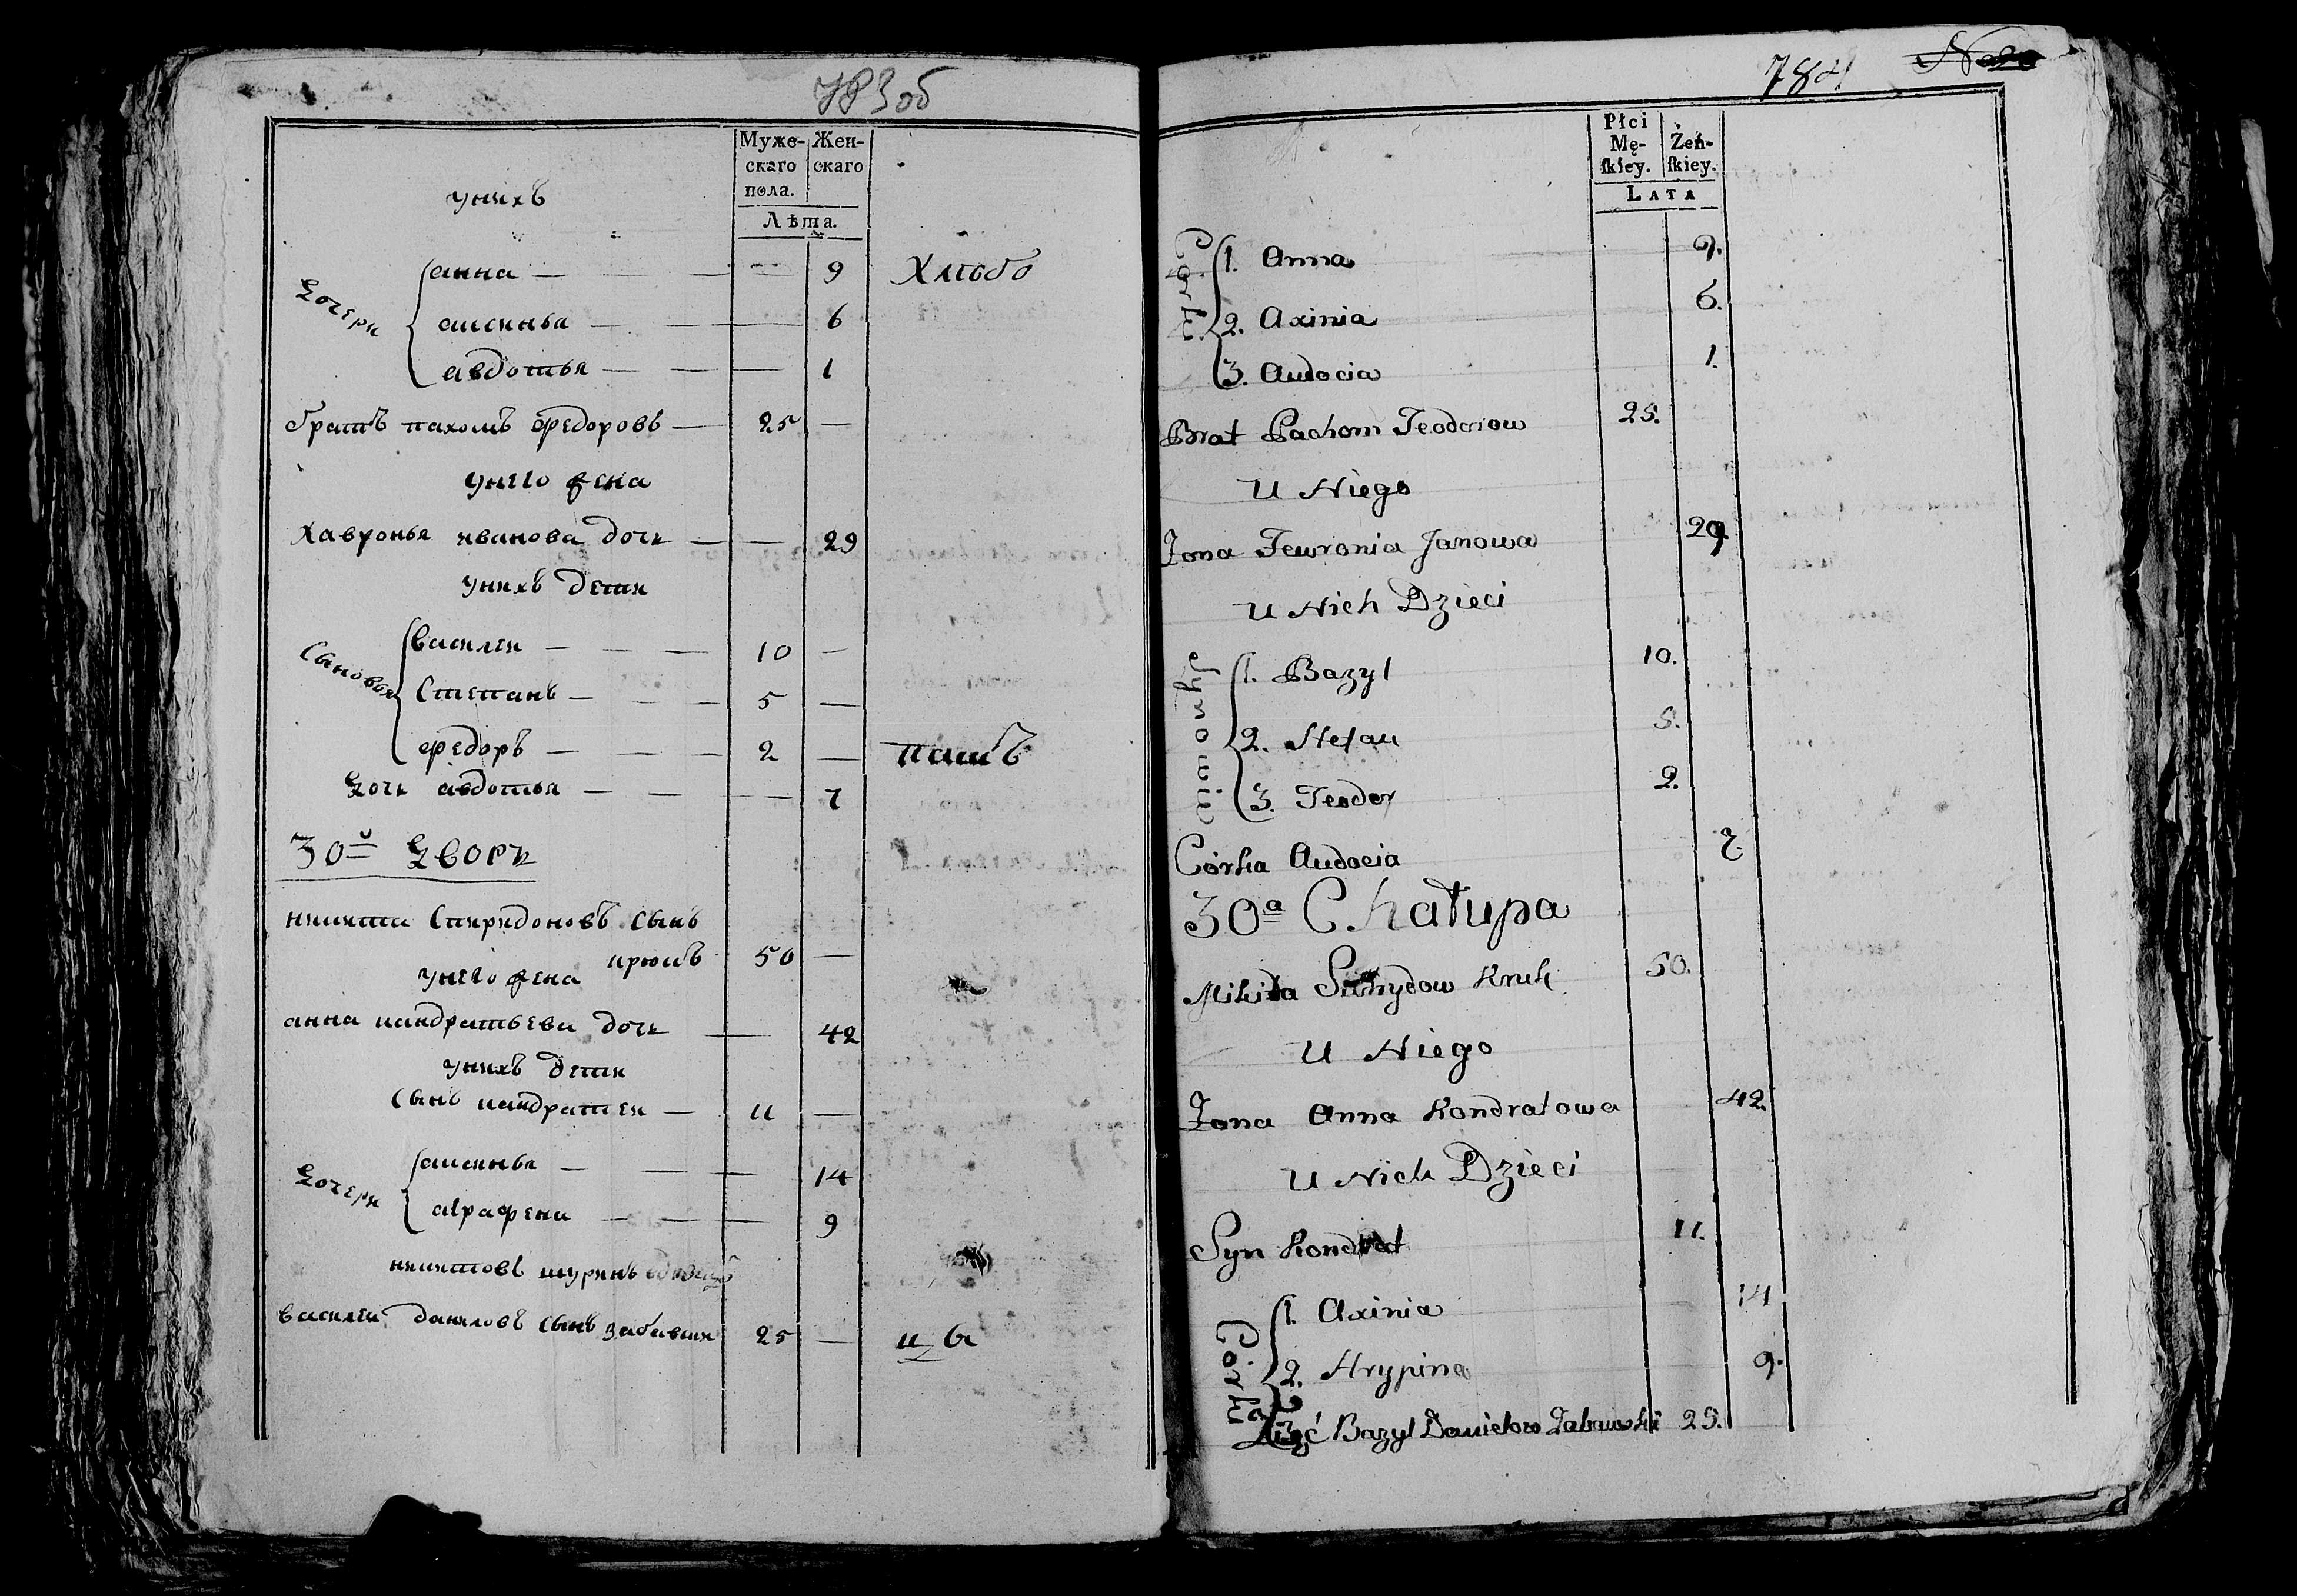 783об
Муже-
скаго
пола.
Жен-
скаго
Лѣта.
унихъ
дочери
анна 9
Хлебо
аксинья 6
авдотья 1
братъ пахомъ федоровъ 25
унего жена
хавронья иванова дочь 29
унихъ дети
Сыновья
василеи 10
Степанъ 5
федоръ 2
пашъ
дочь авдотья 7
30й дворъ
никита Спиридоновъ Сынъ
крюкъ 50
унего жена
анна кандратьева дочь 42
унихъ дети
Сынъ кандратеи 11
дочери
аксинья 14
аграфена 9
никитовъ шуринъ
василеи даниловъ Сынъ 25
784
Płci
Mę-
ſkiey.
Żeń-
ſkiey.
LATA
Córki
1. Anna 9.
2. Axinia 6.
3. Audocia 1.
Brat Pachom Teodorow 25.
U Niego
Żona Fewronia Janowa 29.
U Nich Dzieci
Synowie
1. Bazyl 10.
2. Stefan 5.
3. Teodor 2.
Córka Audocia 7.
30a Chałupa
Mikita Kruk 50.
U Niego
Żona Anna Kondratowa 42.
U Nich Dzieci
Syn Kondrat 11.
Córki
1. Axinia 14.
2. Hrypina 9.
Bazyl Daniełow Zabawski 25.